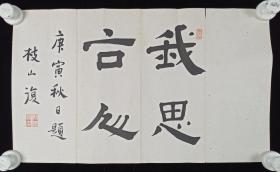 我思
古人
庚寅秋日題
枝山復